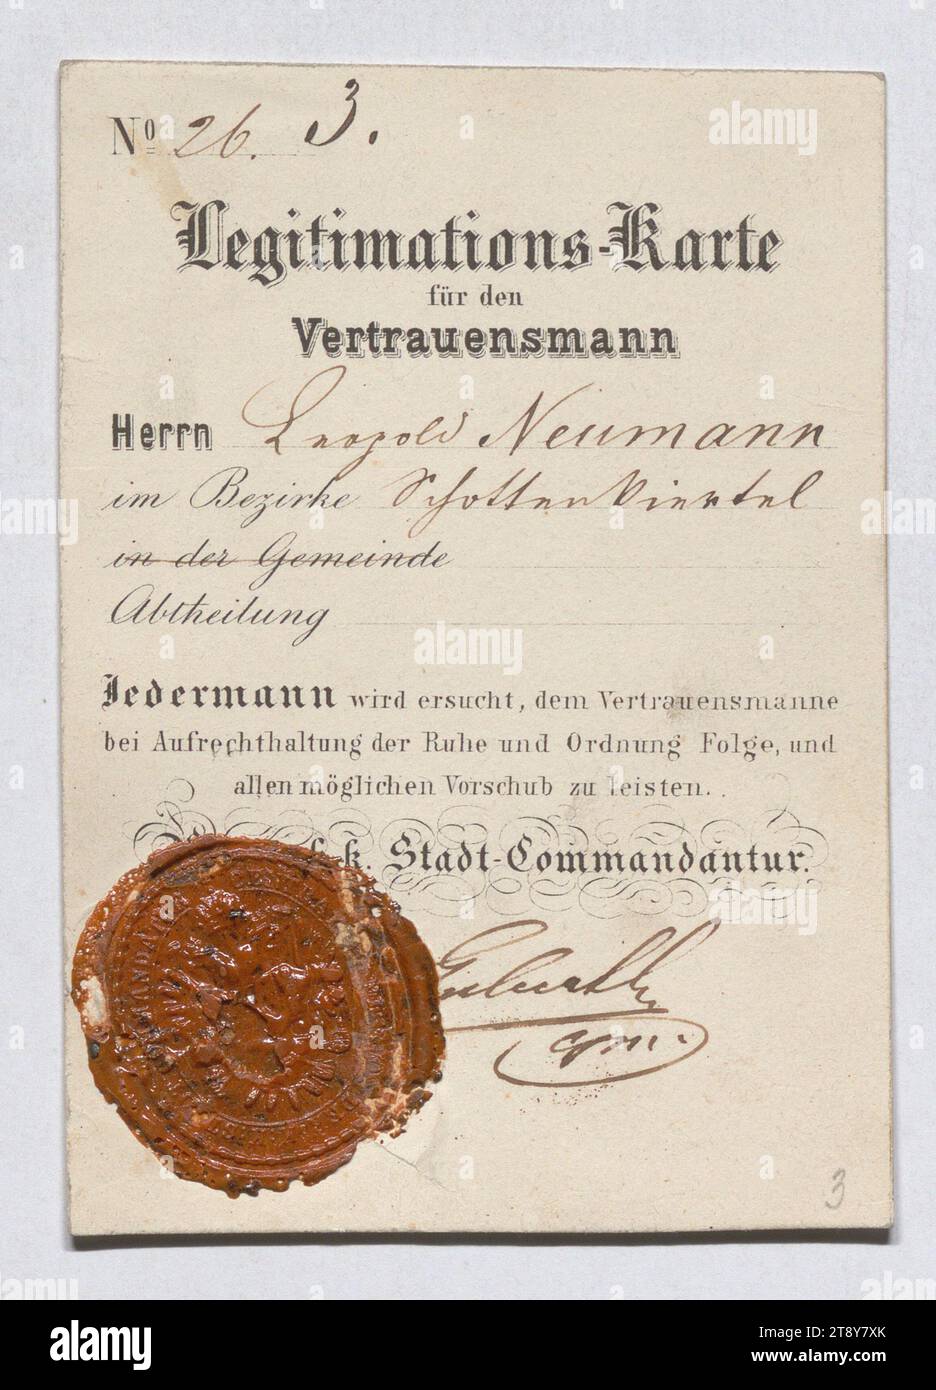 No 26. 3.
Legitimations-Karte
für den
Vertrauensmann
Herrn Leopold Neumann
im Bezirke Schottenviertel
in der Gemeinde
Abtheilung
Jedermann wird ersucht, dem Vertrauensmanne
bei Aufrechthaltung der Ruhe und Ordnung Folge, und
allen möglichen Vorschub zu leisten.
k. Stadt-Commandantur.
3
alamy
Image ID: 2T8Y7XK
www.alamy.com